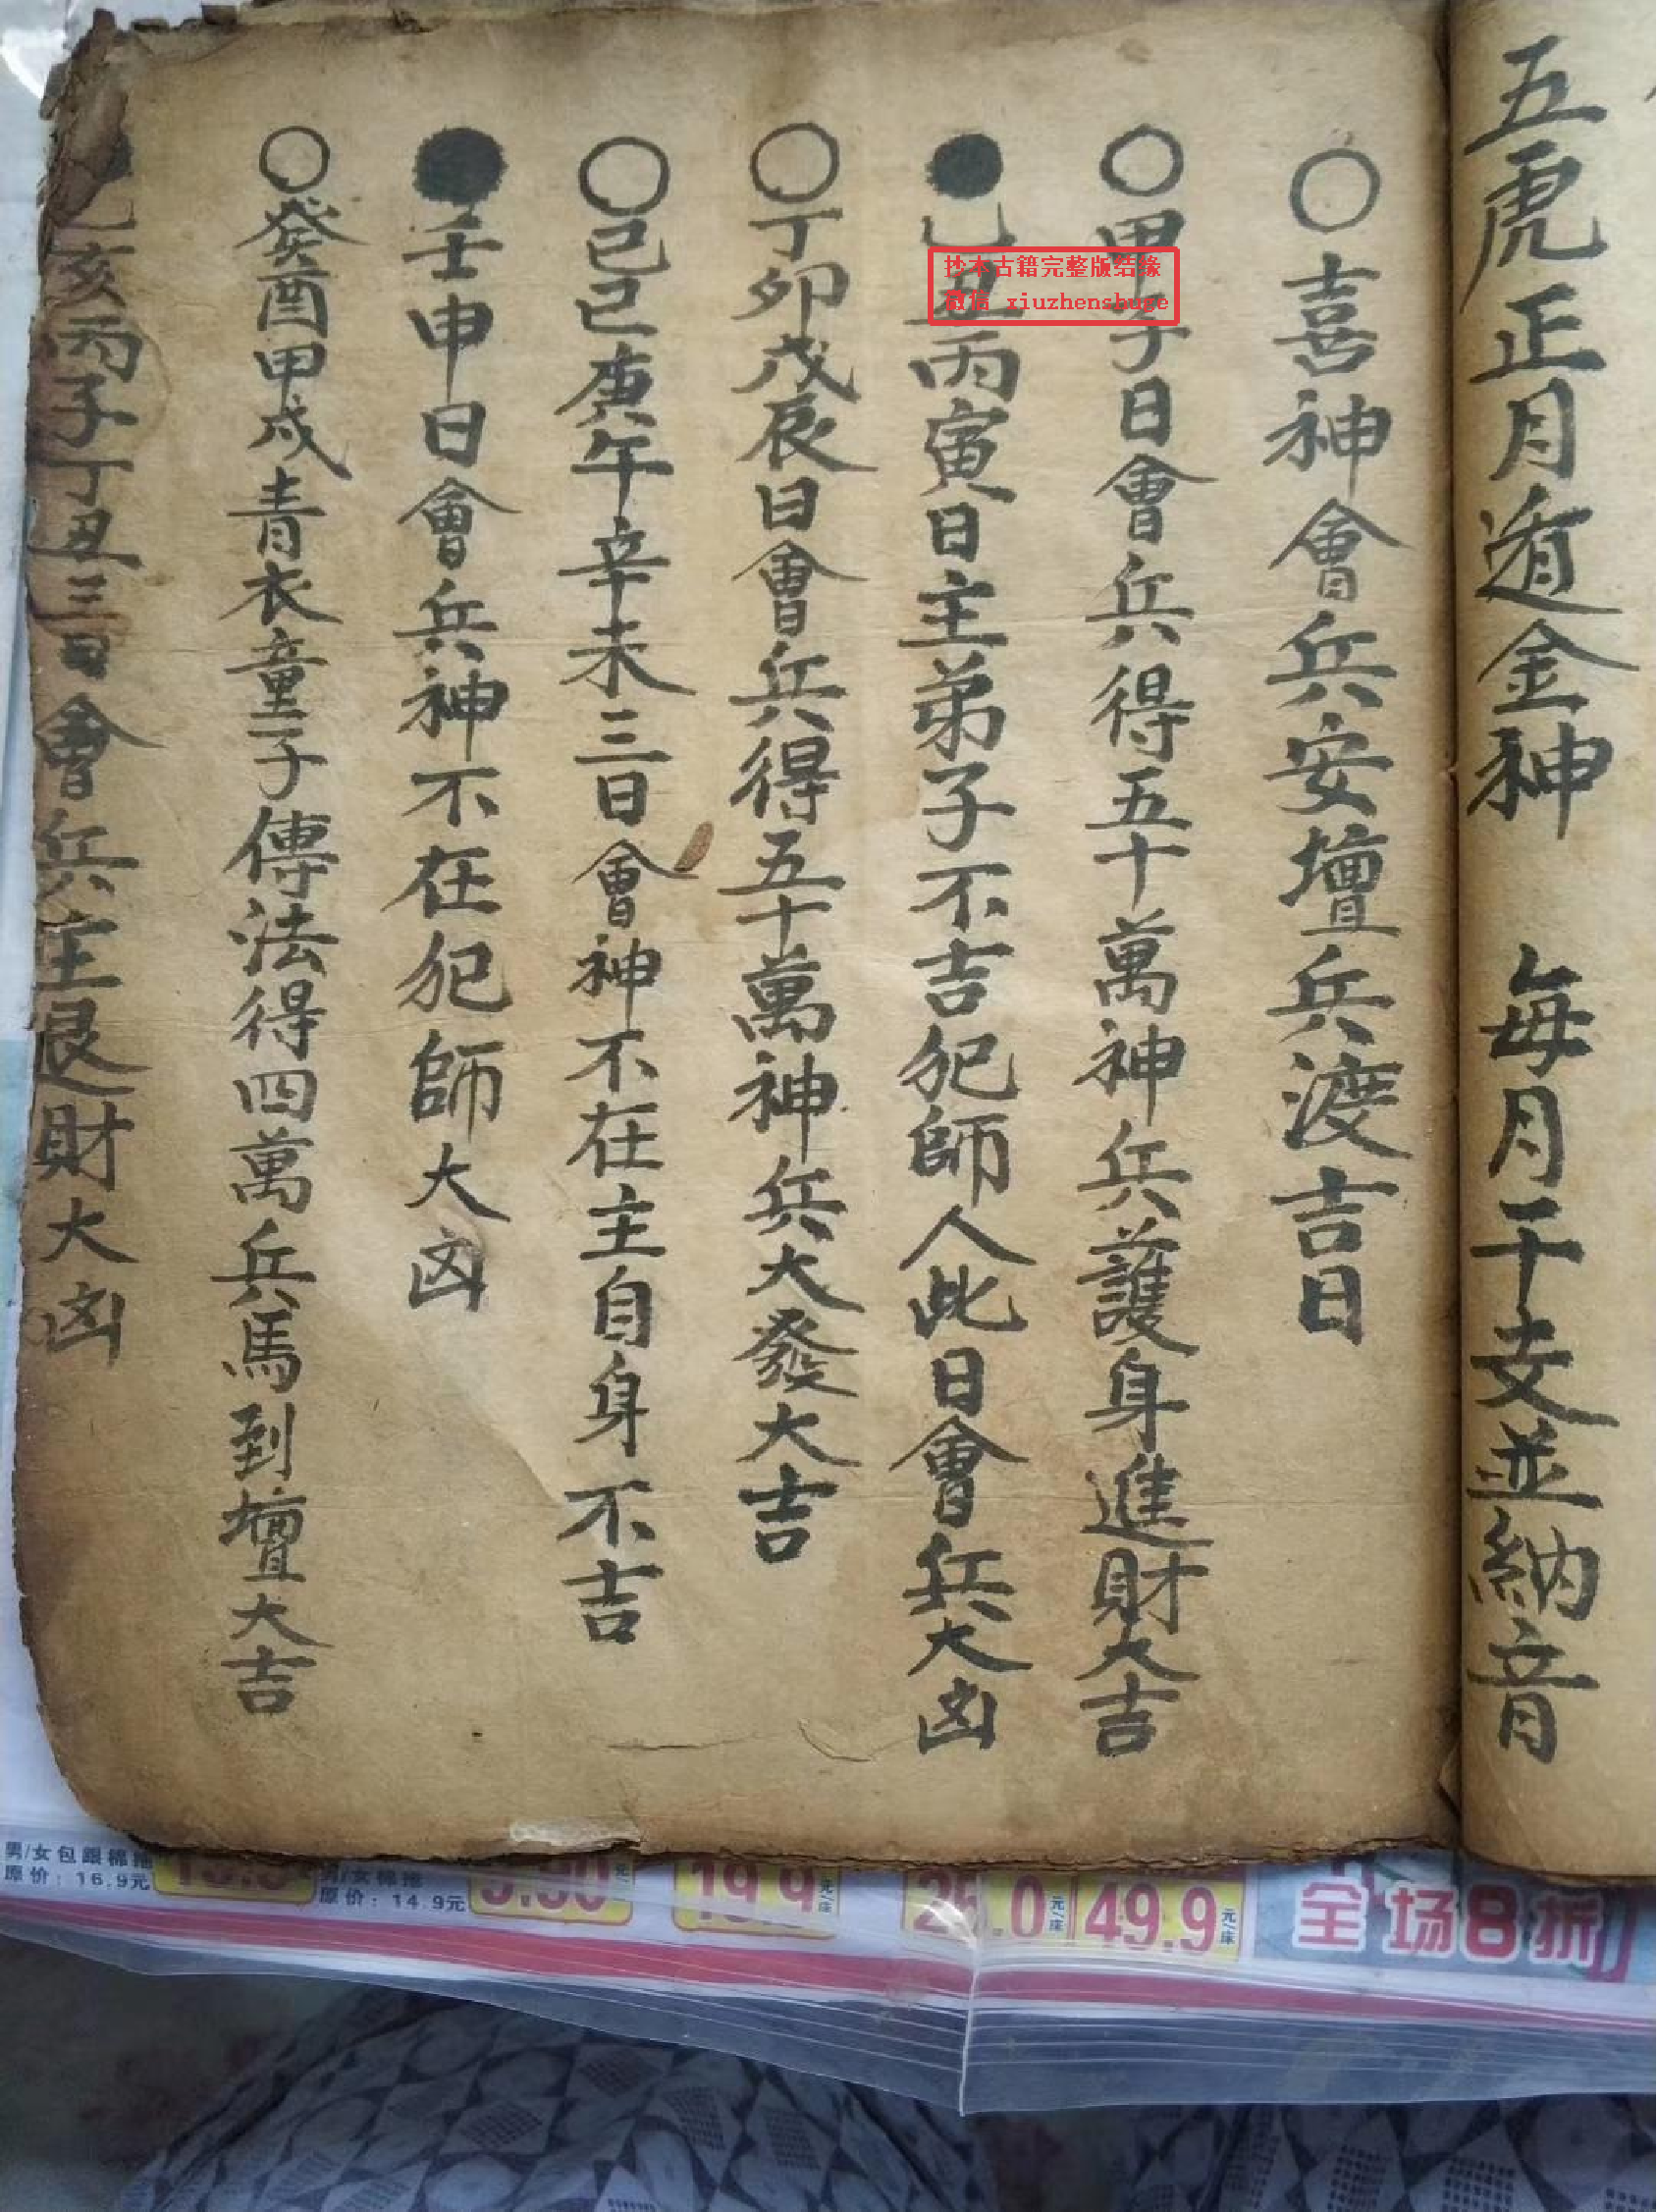 五虎正月遁金神 每月干支並納音
○喜神會兵安壇兵渡吉日
○甲子日會兵得五十萬神兵護身進財大吉
●乙丑丙寅日主弟子不吉犯師人此日會兵大凶
○丁卯戊辰日會兵得五十萬神兵大發大吉
○己巳庚午辛未三日會神不在主自身不吉
●壬申日會兵神不在犯師大凶
○癸酉甲戌青衣童子傳法得四萬兵馬到壇大吉
●乙亥丙子丁丑三日會兵主退財大凶
抄本古籍完整版结缘
微信 xiuzhenshuge
男/女包跟棉拖
原价：16.9元
男/女棉拖
原价：14.9元
9.90元/
19.9元/床
49.9元/床
全场8折